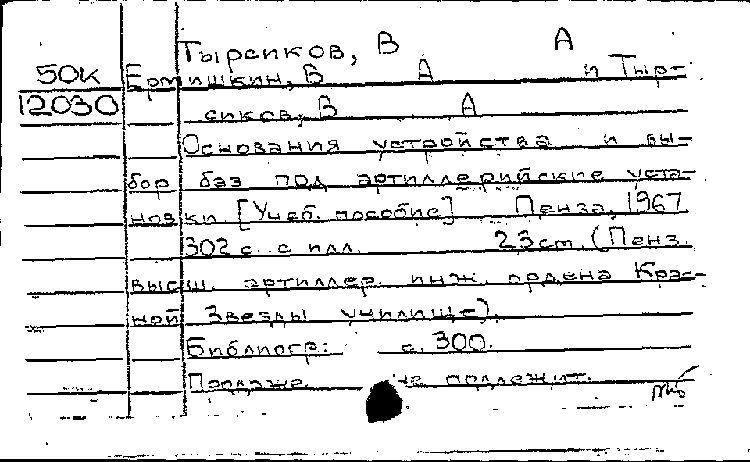 Тырсиков, В А
50К Ермишкин, В А и Тыр-
12030 сиков, В А
Основания устройства и вы-
бор баз под артиллерийские уста-
новки. [Учеб. пособие] Пенза, 1967
302 с. с илл. 23 см. (Пенз.
высш. артиллер. инж. ордена Крас-
ной Звезды училище).
Библиогр: с. 300.
Продаже не подлежит.